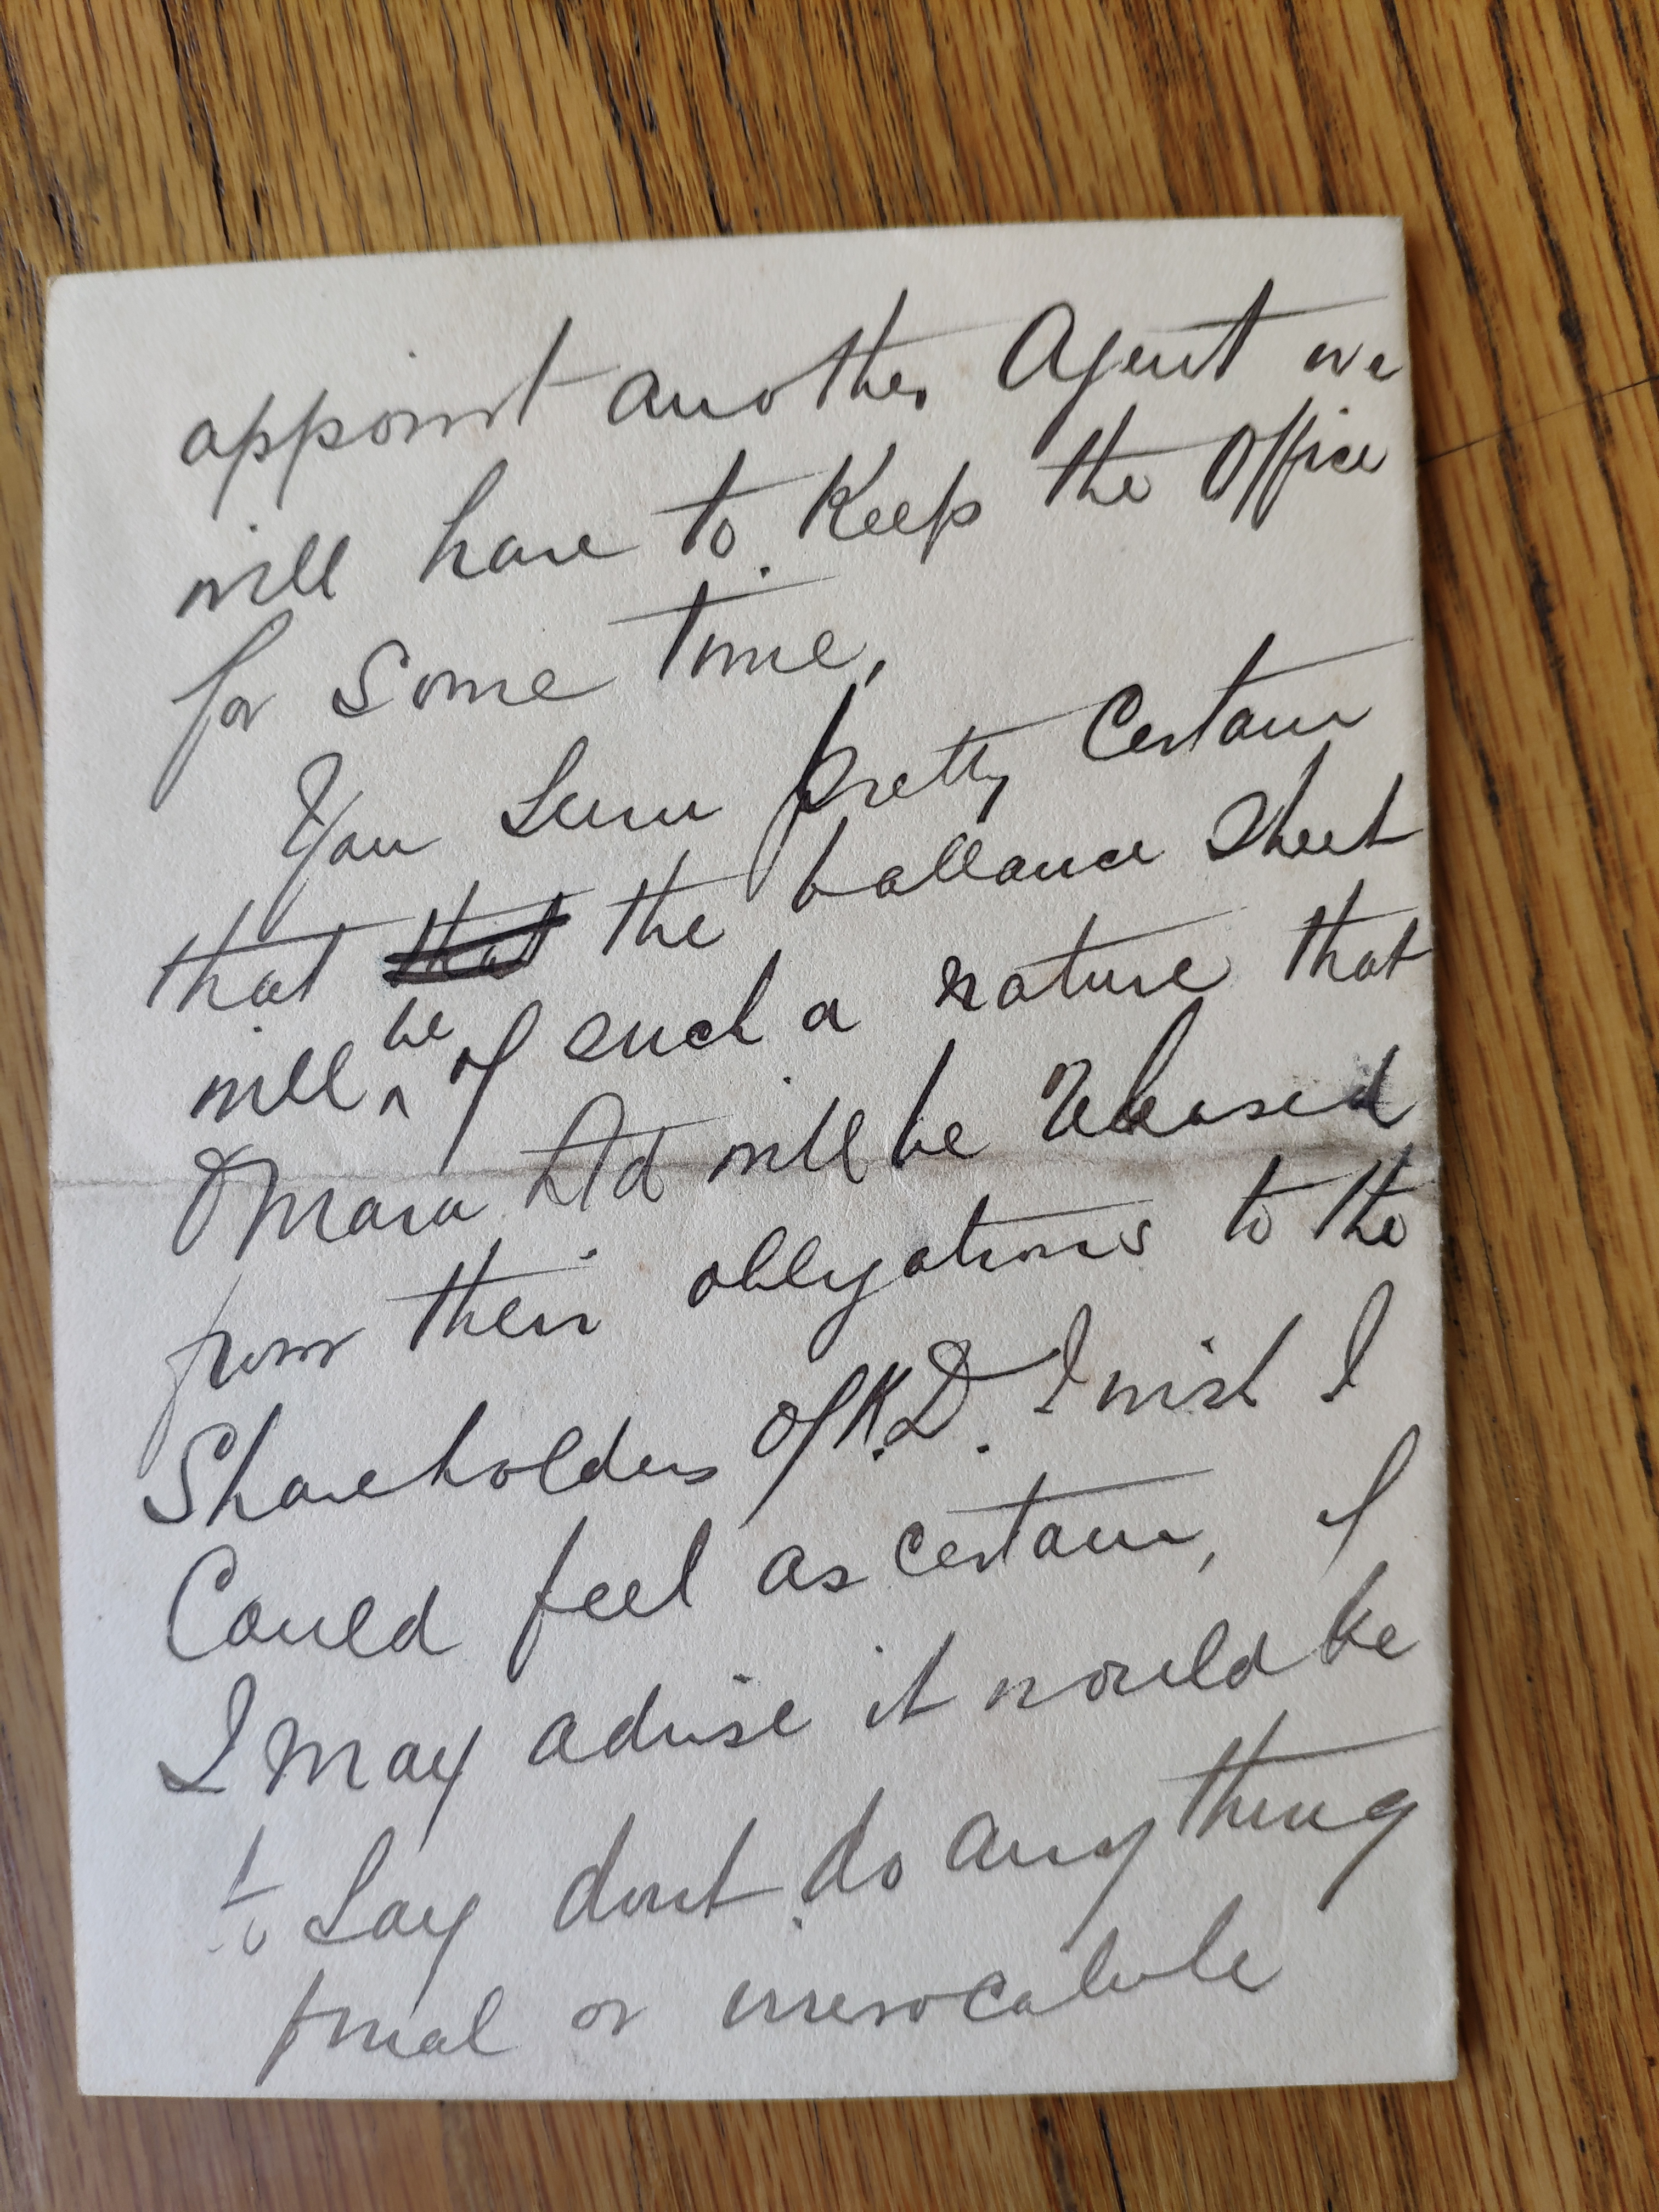 appoint another Agent we
will have to Keep the Office
for Some time,
You Seem pretty Certain
that that the ballance Sheet
will be of such a nature that
OMara Ltd will be Released
from their obligations to the
Shareholders of K.D. I wish I
Could feel as certain, If
I may advise it would be
to Say dont do anything
final or irrevocabule